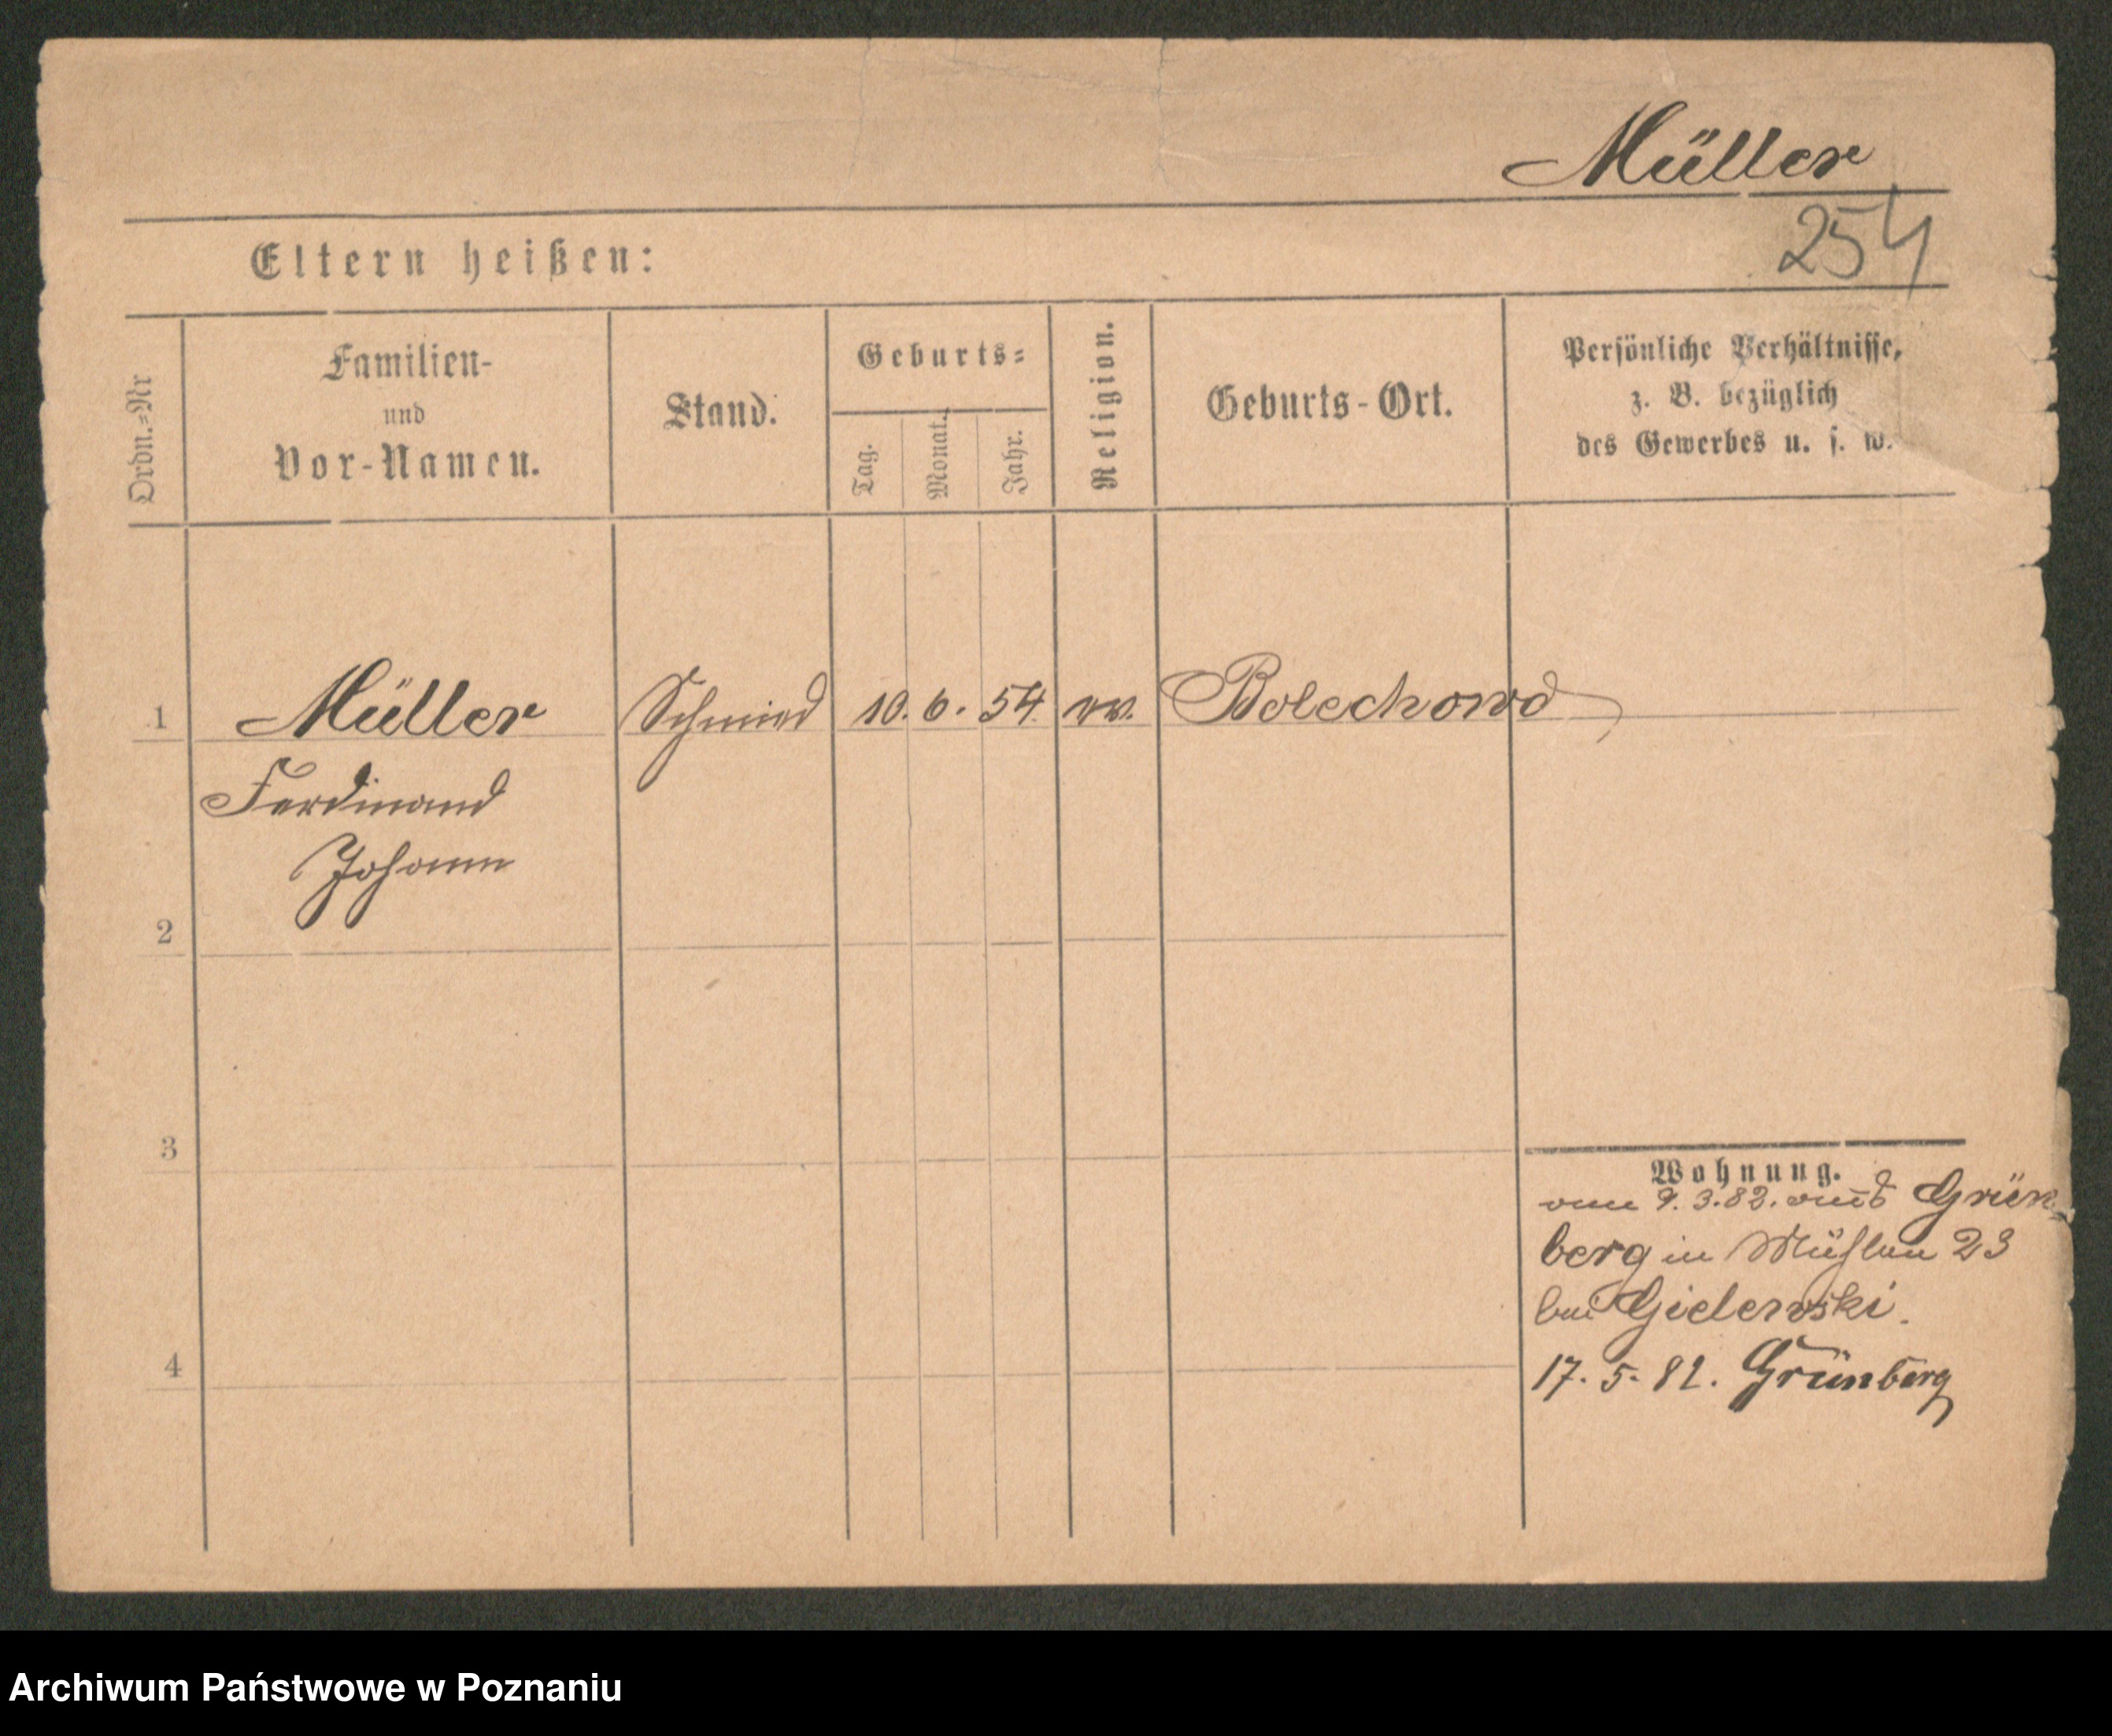 Müller
254
Eltern heißen:
Ordn.=Nr
Familien-
und
Vor-Namen.
Stand.
Geburts=
Tag.
Monat.
Jahr.
Religion.
Geburts-Ort.
Persönliche Verhältnisse,
z. B. bezüglich
des Gewerbes u. s. w.
1 Müller Schmied 10. 6. 54 ev. Bolechowo
Ferdinand
Johann
2
3
4
Wohnung.
vom 9. 3. 82. aus Grün
berg in Mühlen 23
bei Gielewski.
17. 5. 82. Grünberg
Archiwum Państwowe w Poznaniu